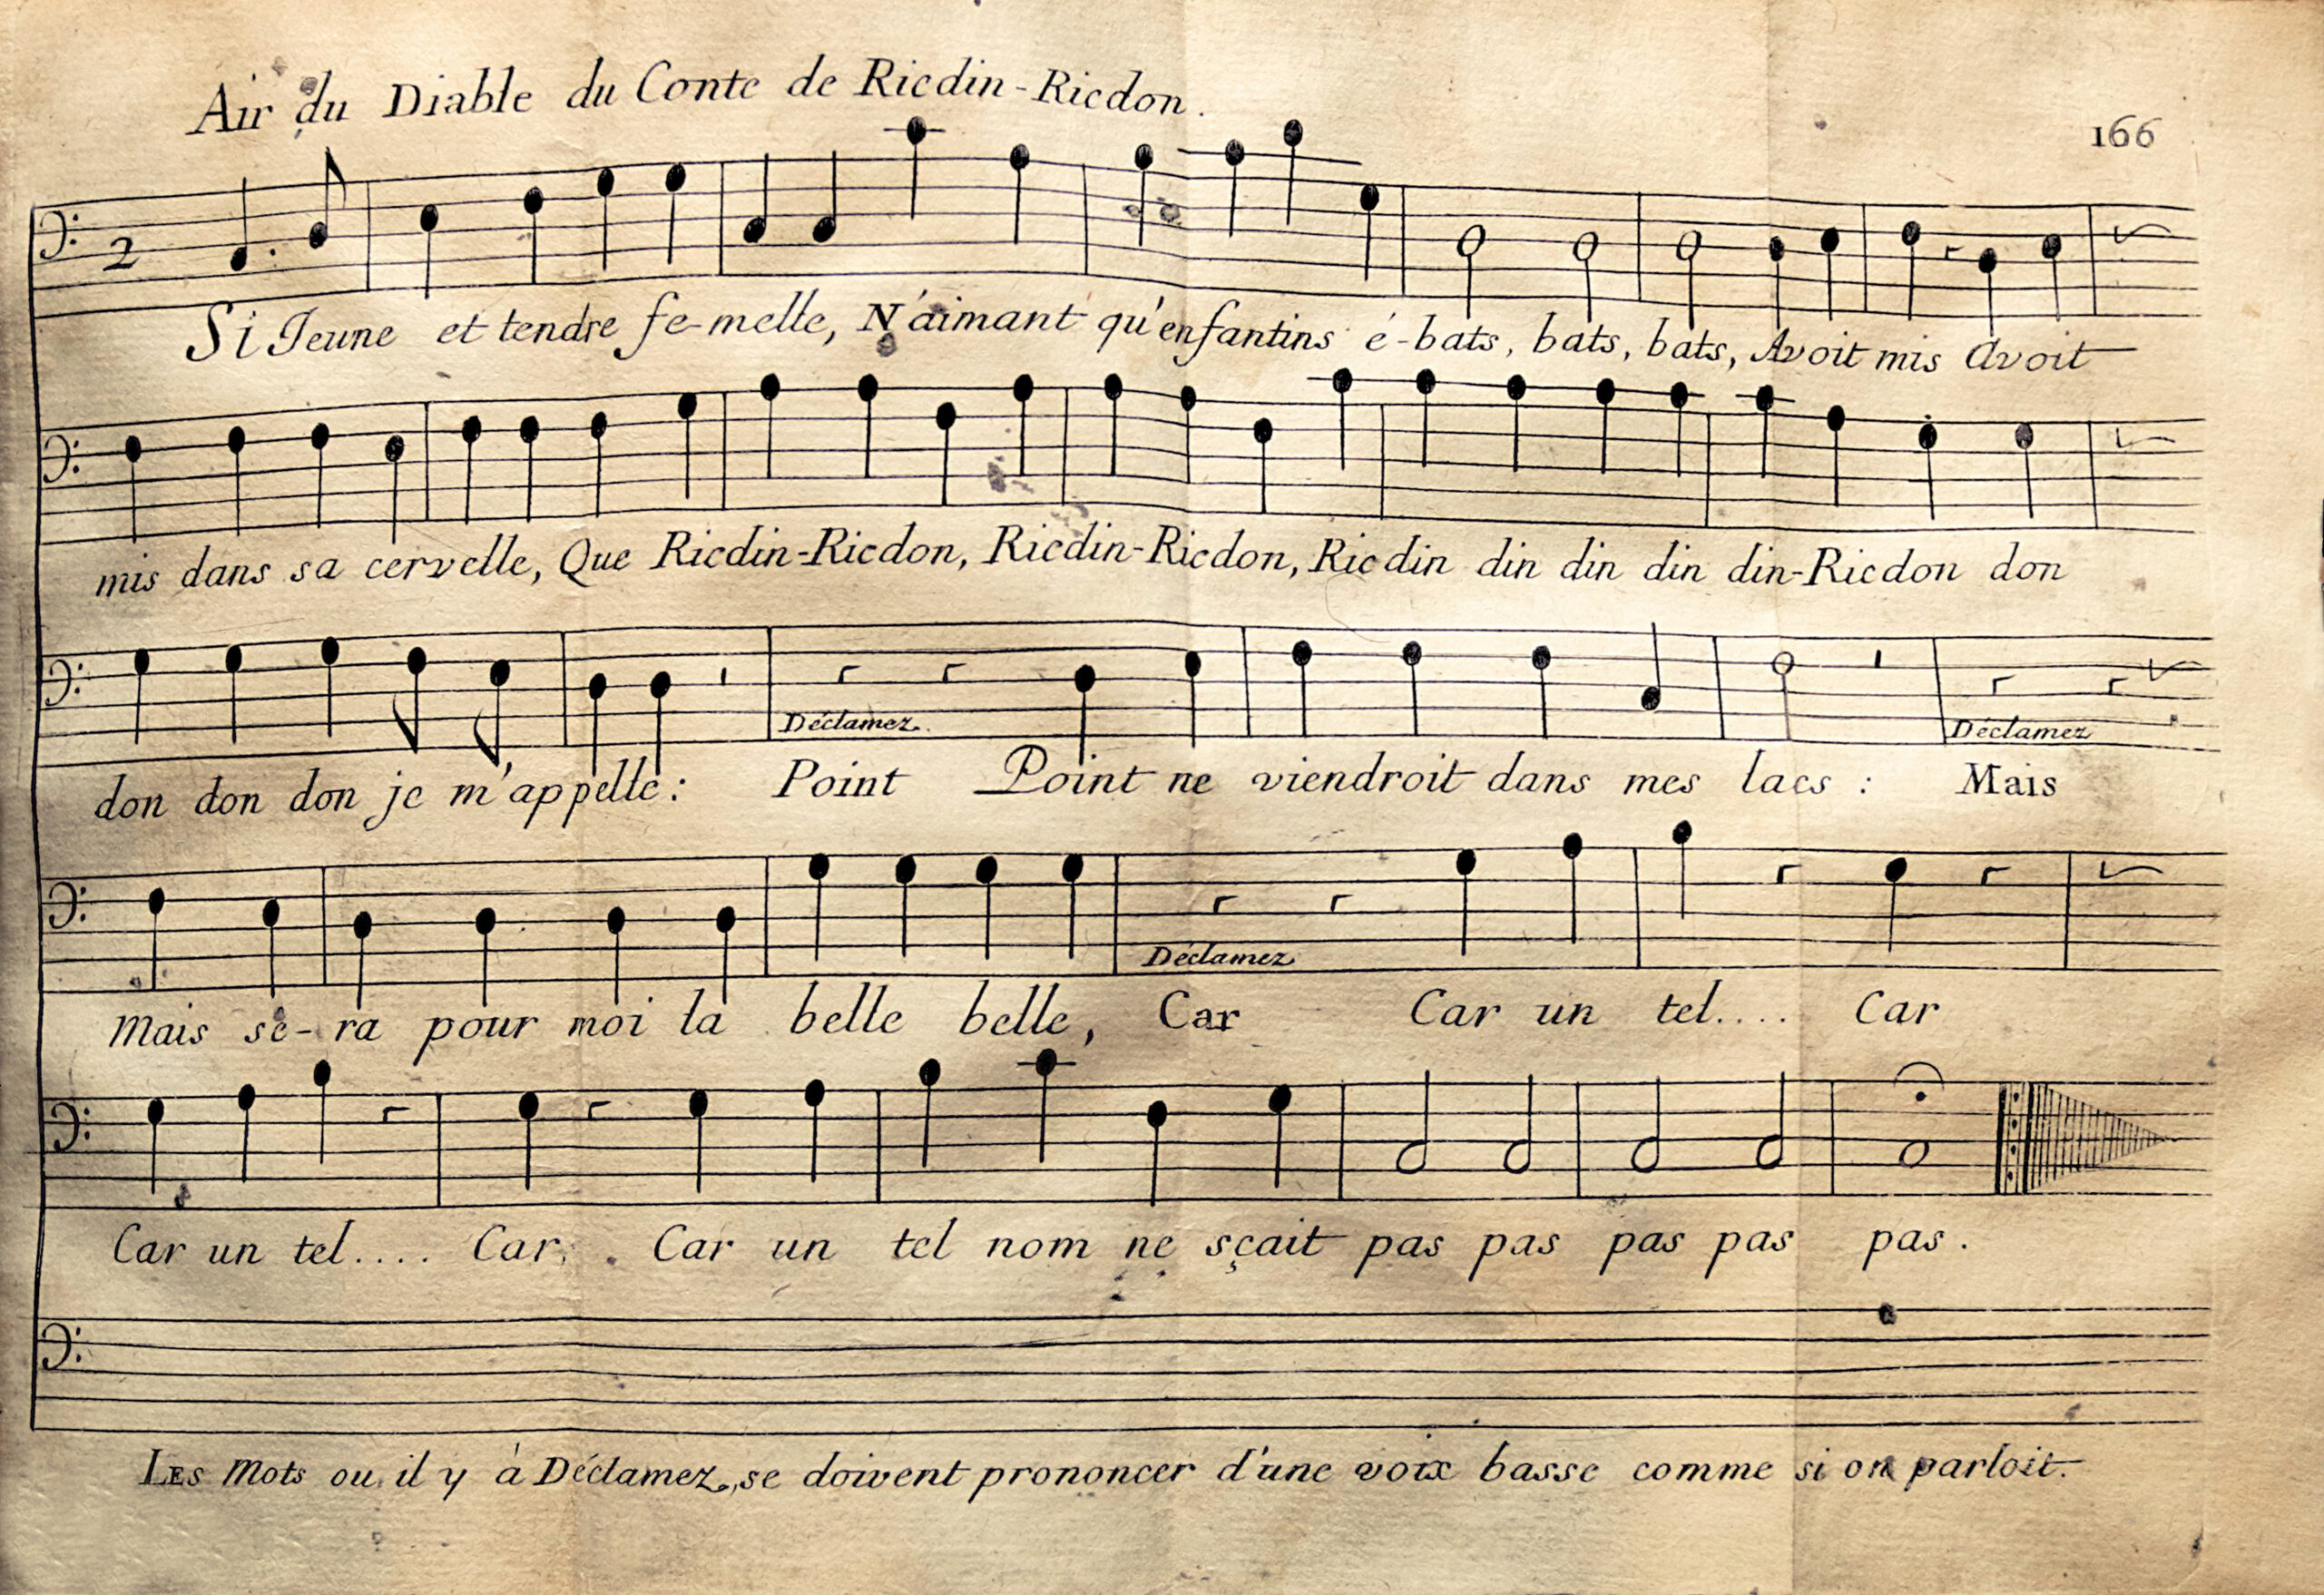 Air du Diable du Conte de Ricdin-Ricdon.
166
2
Si Jeune et tendre fe-melle, N'aimant qu'enfantins é-bats, bats, bats, Avoit mis Avoit
mis dans sa cervelle, Que Ricdin-Ricdon, Ricdin-Ricdon, Ricdin din din din din-Ricdon don
Déclamez. Déclamez
don don don je m'appelle: Point Point ne viendroit dans mes lacs : Mais
Déclamez
Mais se-ra pour moi la belle belle, Car Car un tel.... Car
Car un tel.... Car. Car un tel nom ne sçait pas pas pas pas pas.
Les Mots ou il y à Déclamez, se doivent prononcer d'une voix basse comme si on parloit.